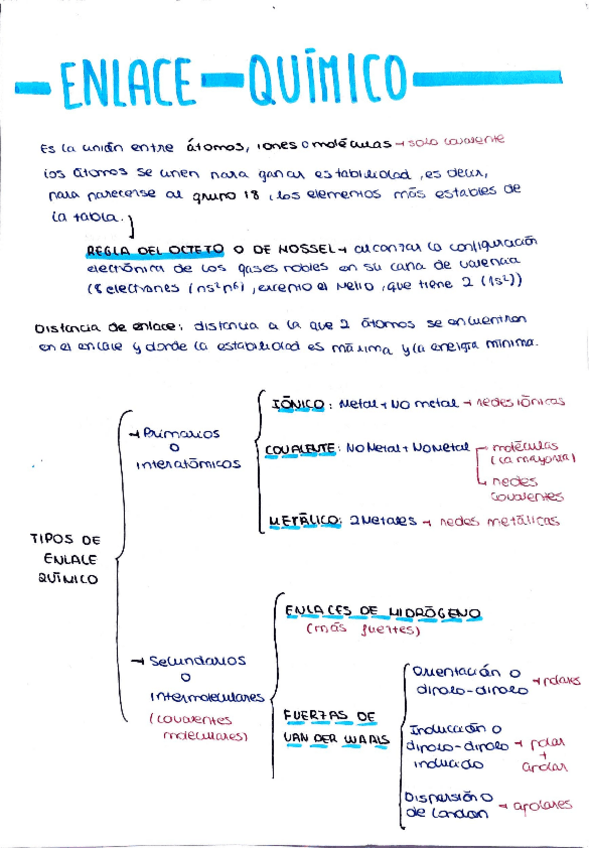 ENLACE QUÍMICO
Es la unión entre átomos, iones o moléculas → solo covalente
Los átomos se unen para ganar estabilidad, es decir,
para parecerse al grupo 18, los elementos más estables de
la tabla.
REGLA DEL OCTETO O DE KOSSEL → alcanzar la configuración
electrónica de los gases nobles en su capa de valencia
(8 electrones (ns²np⁶), excepto el Helio, que tiene 2 (1s²))
Distancia de enlace: distancia a la que 2 átomos se encuentran
en el enlace y donde la estabilidad es máxima y la energía mínima.
TIPOS DE
ENLACE
QUÍMICO
→ Primarios
o
interatómicos
IÓNICO: Metal + NO metal → redes iónicas
COVALENTE: NO Metal + NO Metal
moléculas
(la mayoría)
redes
covalentes
METÁLICO: 2 Metales → redes metálicas
→ Secundarios
o
intermoleculares
(covalentes
moleculares)
ENLACES DE HIDRÓGENO
(más fuertes)
FUERZAS DE
VAN DER WAALS
Orientación o
dipolo-dipolo → polares
Inducción o
dipolo-dipolo
inducido → polar
+
apolar
Dispersión o
de London → apolares